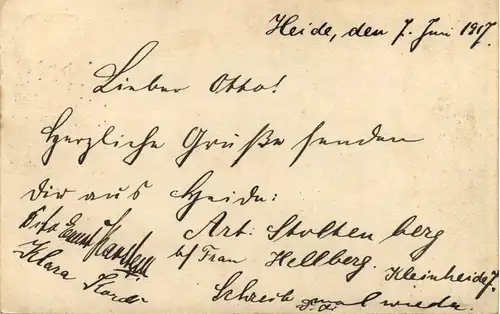 Heide, den 7. Juni 1917.
Lieber Otto!
Herzliche Grüße senden
Dir aus Heide:
Art. Stoltenberg
b/ Frau Hellberg. Kleinheide 7.
Klara
Schreib mal wieder.